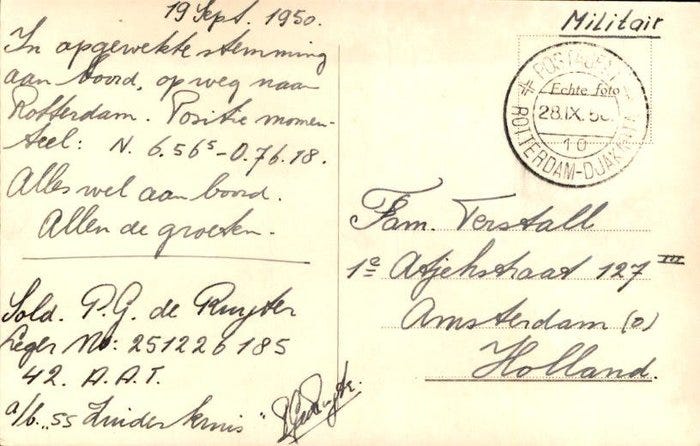 19 Sept. 1950.
In opgewekte stemming
aan boord, op weg naar
Rotterdam. Positie momen-
teel: N. 6.56⁵ - O. 76.18.
Alles wel aan boord.
Allen de groeten.
Sold. P.G. de Ruyter
Leger No: 251226185
42. A.A.T.
a/b. „SS Zuiderkruis"
PGdeRuyter
Militair
POSTAGENT
Echte foto
28.IX.50.
10
ROTTERDAM-DJAKARTA
Fam. Terstall
1e Atjehstraat 127 III
Amsterdam (O)
Holland.